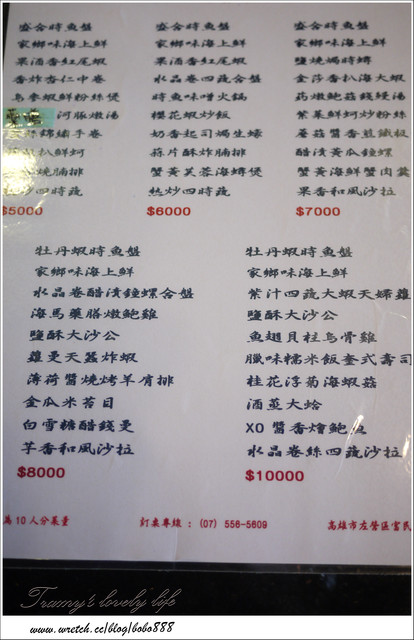 盛合時魚盤
家鄉味海上鮮
果酒香紅尾蝦
香炸杏仁中卷
烏參蝦鮮粉絲煲
河豚燉湯
錦繡手卷
扒鮮蚵
燒腩排
四時蔬
$5000
盛合時魚盤
家鄉味海上鮮
果酒香紅尾蝦
水晶卷四蔬合盤
時魚味噌火鍋
櫻花蝦炒飯
奶香起司焗生蠔
蒜片酥炸腩排
蟹黃芙蓉海蟳煲
熱炒四時蔬
$6000
盛合時魚盤
家鄉味海上鮮
鹽燒焗時蟳
金莎香扒海大蝦
藥燉鮑菇錢鰻湯
紫菜鮮蚵炒粉絲
蘑菇醬香煎鐵板
醋漬黃瓜鐘螺
蟹黃海鮮蟹肉羹
果香和風沙拉
$7000
牡丹蝦時魚盤
家鄉味海上鮮
水晶卷醋漬鐘螺合盤
海馬藥膳燉鮑雞
鹽酥大沙公
羅曼天蠶炸蝦
薄荷醬燒烤羊肩排
金瓜米苔目
白雪糖醋錢曼
芋香和風沙拉
$8000
牡丹蝦時魚盤
家鄉味海上鮮
紫汁四蔬大蝦天婦羅
鹽酥大沙公
魚翅貝柱烏骨雞
臘味糯米飯奎式壽司
桂花浮菊海蝦菇
酒蒸大蛤
XO 醬香燴鮑魚
水晶卷絲四蔬沙拉
$10000
為 10 人分菜量
訂桌專線：(07) 556-5609
高雄市左營區富民
Tramy's lovely life
www.wretch.cc/blog/bobo888